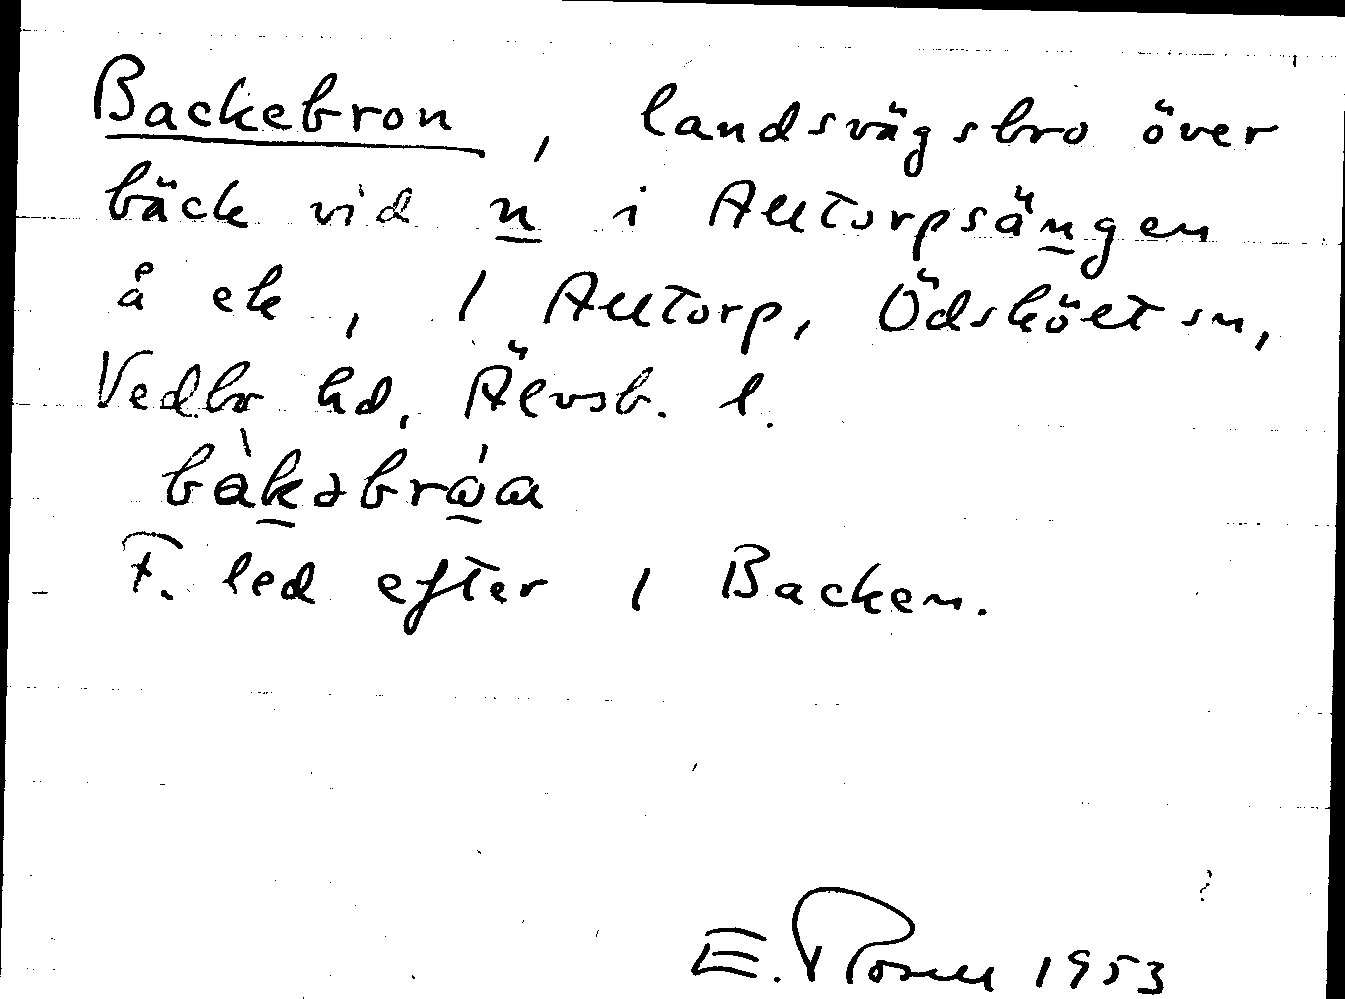 Backebron, landsvägsbro över
bäck vid n i Alltorpsängen
å ek, 1 Alltorp, Ödskölt sn,
Vedbo hd, Älvsb. l.
bàkəbrώα
F. led efter 1 Backen.
E. Rosell 1953